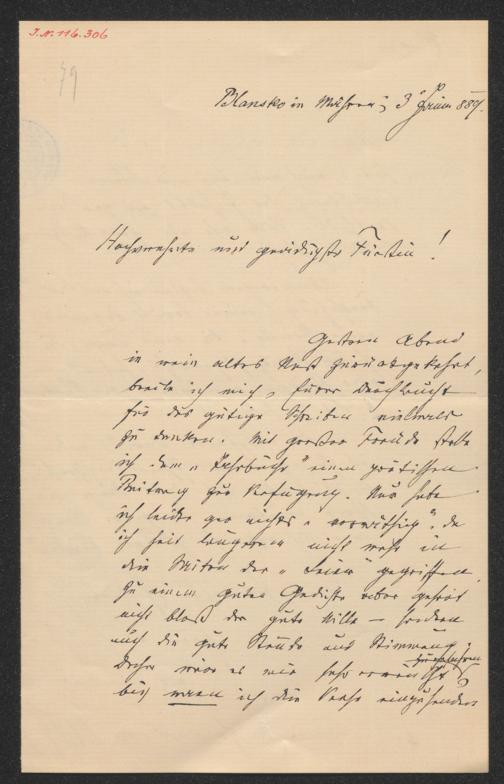 J.N. 116.306
79
Blansko in Mähren, 3 Juni 889.
Hochverehrte und gnädigste Fürstin!
Gestern Abend
in mein altes Nest zurückgekehrt,
beeile ich mich, Eurer Durchlaucht
für das gütige Schreiben vielmals
zu danken. Mit großer Freude stelle
ich dem „Jahrbuche“ einen poetischen
Beitrag zur Verfügung. Nur habe
ich leider gar nichts „vorräthig“, da
ich seit langem nicht mehr in
die Saiten der „Leier“ gegriffen.
Zu einem guten Gedichte aber gehört
nicht bloß der gute Wille — sondern
auch die gute Stunde und Stimmung;
daher wäre es mir sehr erwünscht zu erfahren
bis wann ich die Verse einzusenden